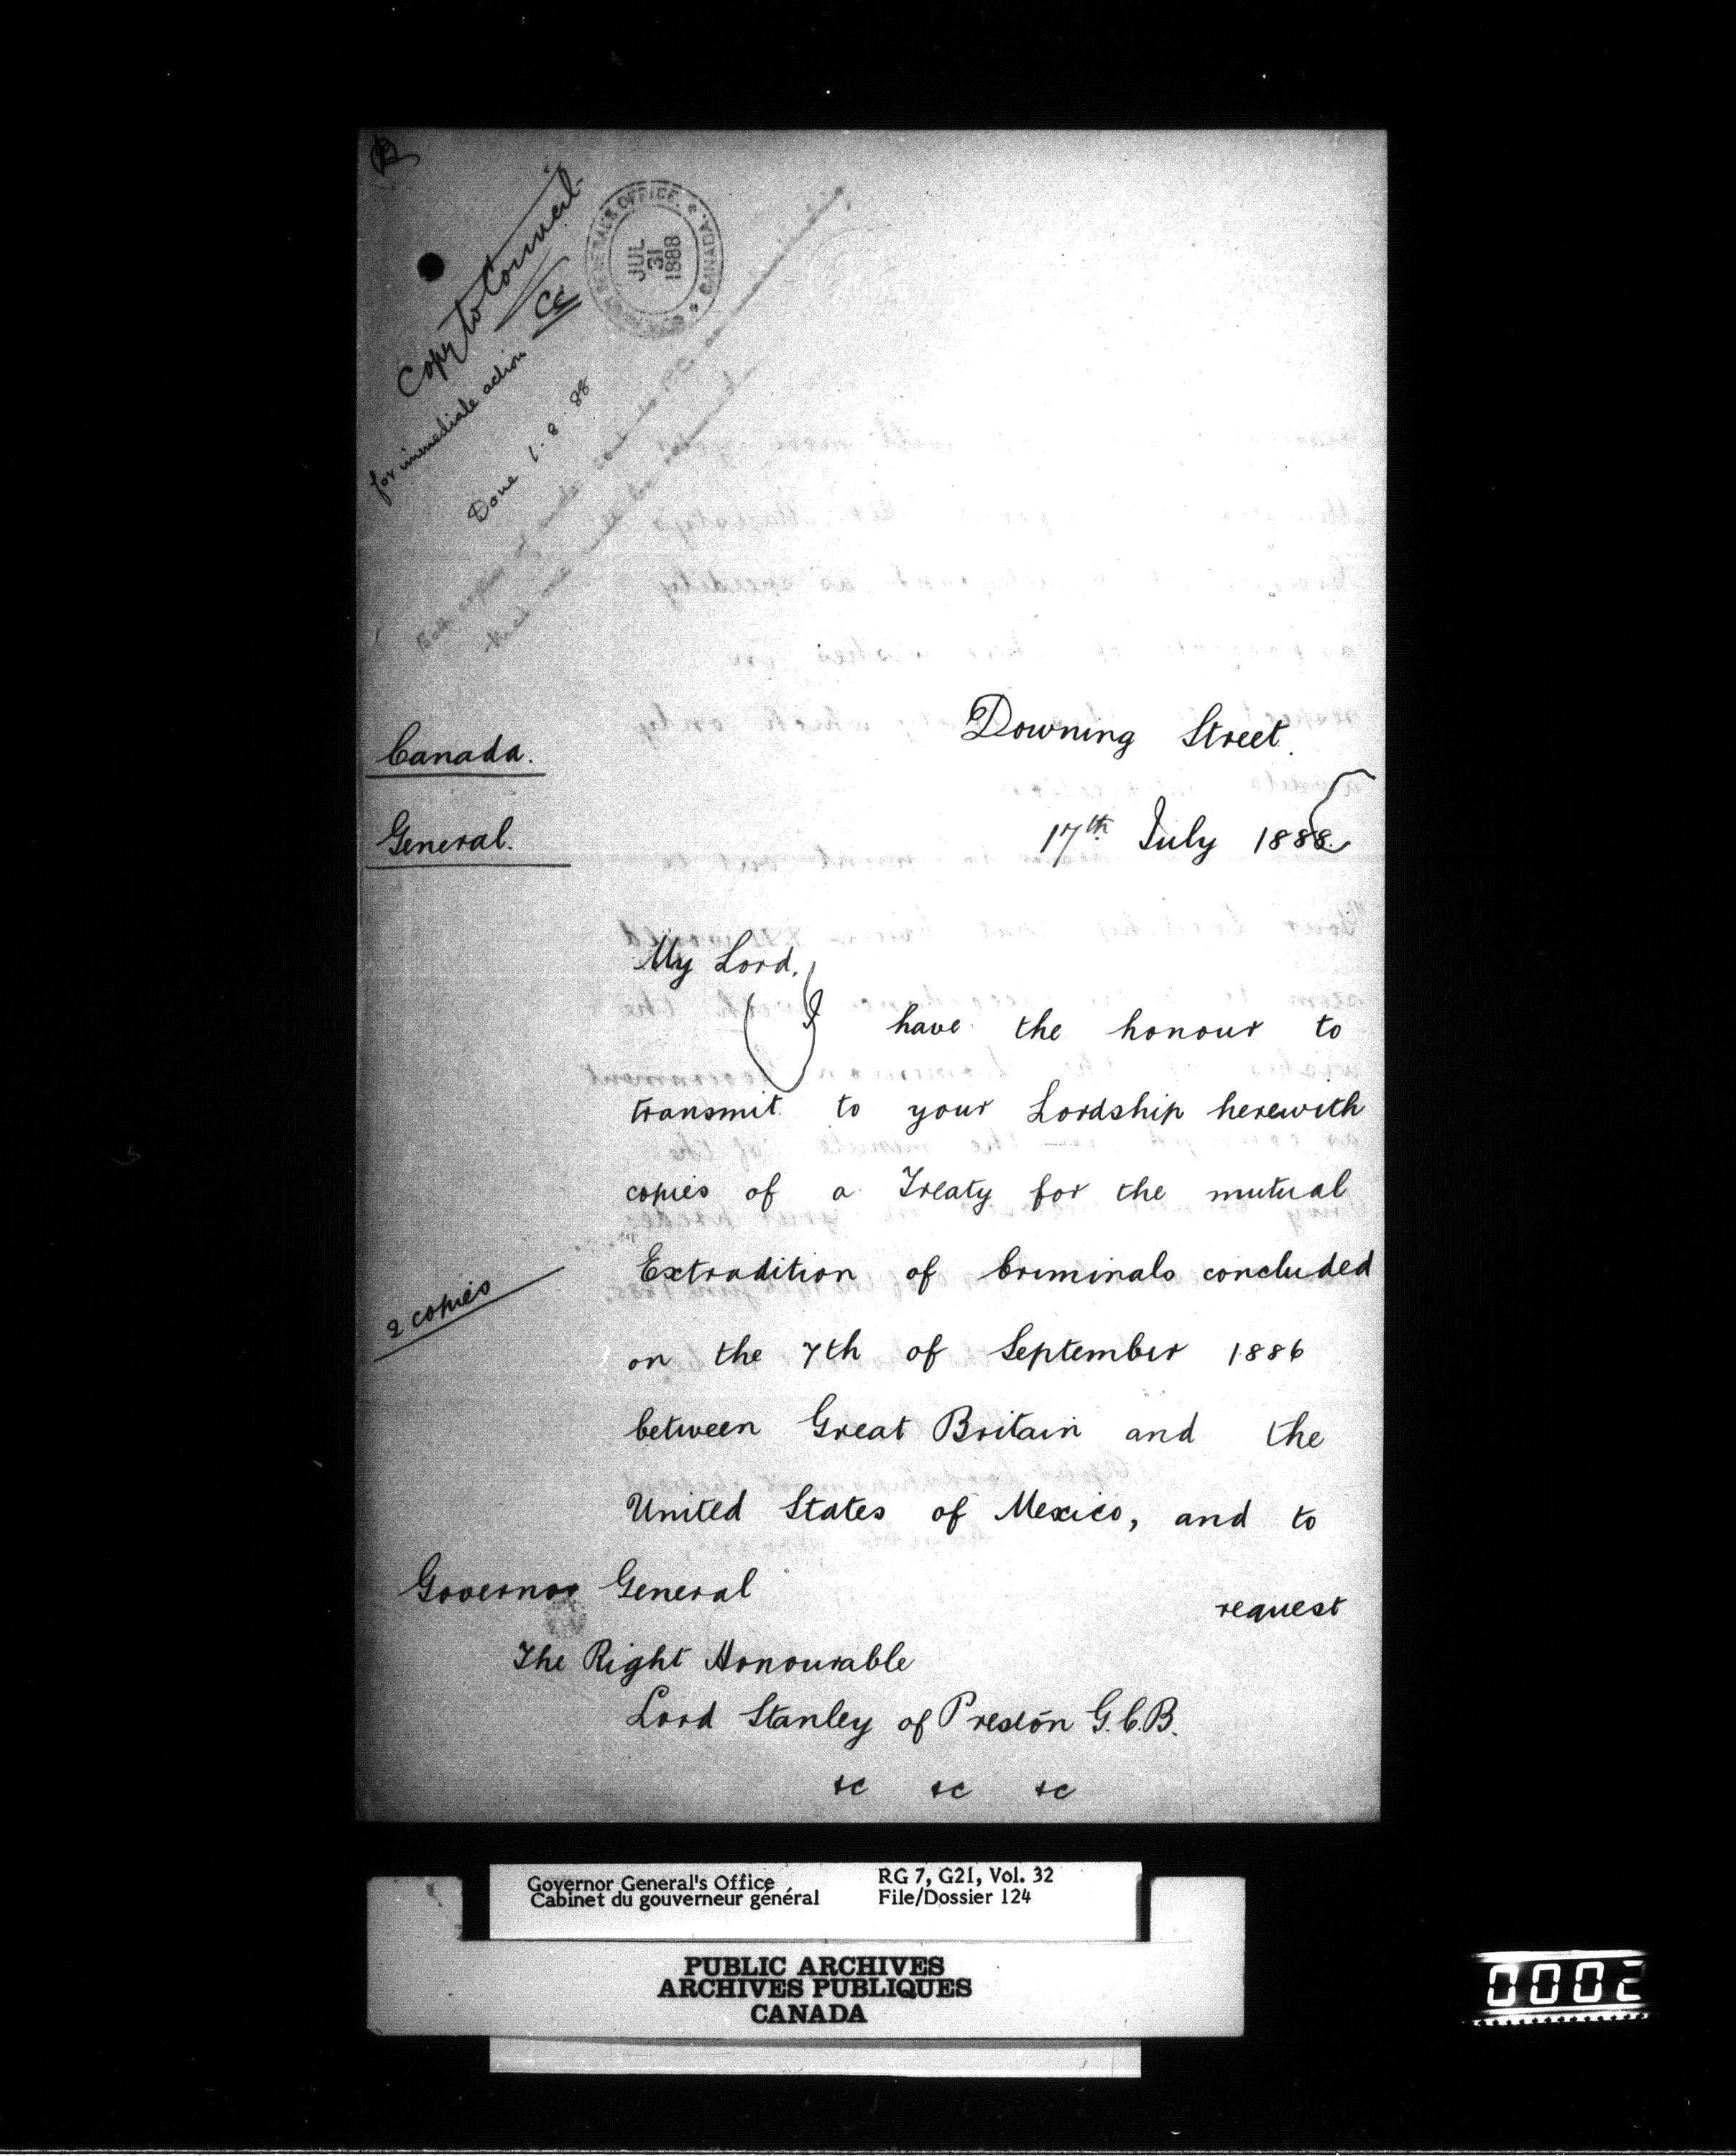 Copy to Council
Cc
for immediate action
Done 1.8.88
GENERAL'S OFFICE
CANADA
JUL
31
1888
Both copies sent to P.C.
Downing Street.
Canada.
General.
17th July 1888.
My Lord,
I have the honour to
transmit to your Lordship herewith
copies of a Treaty for the mutual
Extradition of Criminals concluded
2 copies
on the 7th of September 1886
between Great Britain and the
United States of Mexico, and to
request
Governor General
The Right Honourable
Lord Stanley of Preston G.C.B.
&c &c &c
Governor General's Office
Cabinet du gouverneur général
RG 7, G21, Vol. 32
File/Dossier 124
PUBLIC ARCHIVES
ARCHIVES PUBLIQUES
CANADA
0002